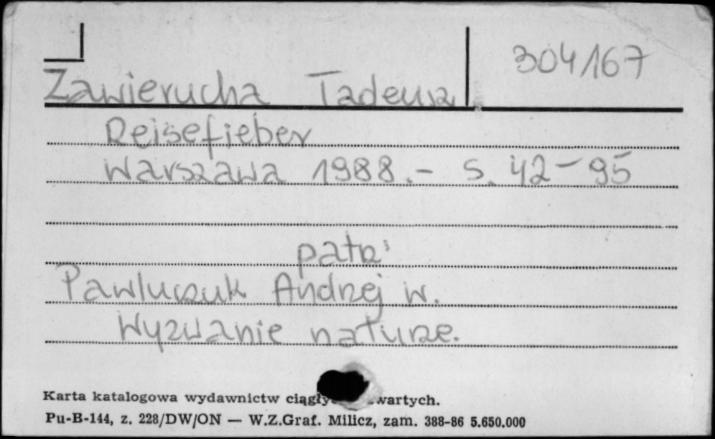 304167
Zawierucha Tadeusz
Reisefieber
Warszawa 1988.- s. 42-95
patrz:
Pawluczuk Andrzej W.
Wyzwanie naturze.
Karta katalogowa wydawnictw wartych.
Pu-B-144, z. 228/DW/ON — W.Z.Graf. Milicz, zam. 388-86 5.650.000